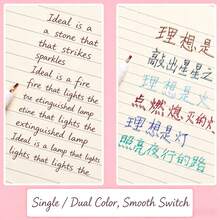 Ideal is a
a stone that
that strikes
sparkles
Ideal is a fire
fire that lights the
the extinguished lamp
that lights the
extinguished lamp
Ideal is a lamp that lights
lights that lights the
理想是
敲出星星之
理想是火
点燃熄灭的火
理想是灯
照亮夜行的路
Single / Dual Color, Smooth Switch